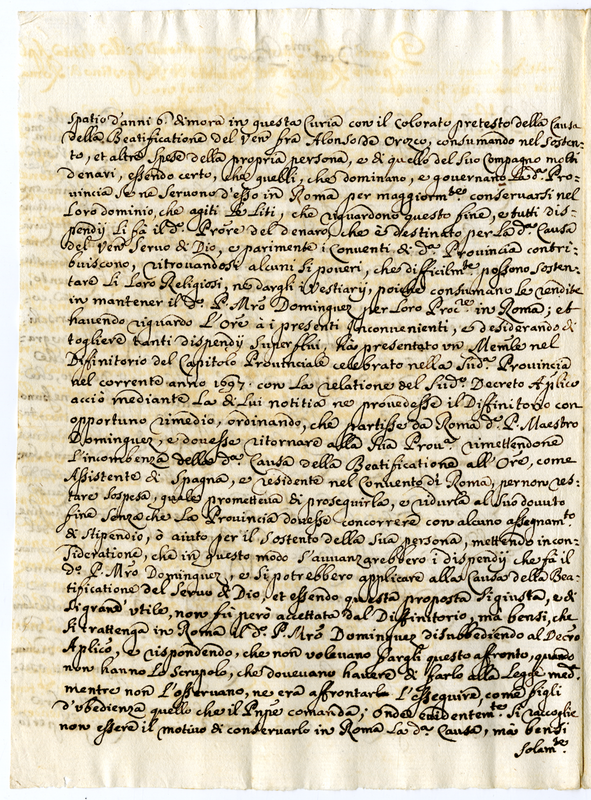 spatio d'anni 6. dimora in questa Curia con il Colorato pretesto della Causa
della Beatificatione del Ven. fra Alonso de Orozco, consumando nel Sosten-
to, et altre Spese della propria persona, e di quello del Suo Compagno molti
denari, essendo certo, che quelli, che dominano, e governano La d.a Pro-
vincia se ne Servono d'esso in Roma per maggiorm.te conservarsi nel
Loro dominio, che agiti Le Liti, che riguardono questo fine, e tutti dis-
pendij Li fà il d.o Prore del denaro, che è destinato per La d.a Causa
del Ven. Servo di Dio, e parimente i Conventi di d.a Provincia contri-
buiscono, ritrovandosi alcuni Si poveri, che difficilm.te possono Sosten-
tare Li Loro Religiosi, ne dargli i Vestiarij, poiche consumano Le rendite
in mantener il d.o P. Mro Dominguez per Loro Proc.re in Roma; et
havendo riguardo L'Ore à i presenti Inconvenienti, e desiderando di
togliere tanti dispendij Superflui, hà presentato un Memle nel
Diffinitorio del Capitolo Provinciale celebrato nella Sud.a Provincia
nel corrente anno 1697. con La relatione del Sud.o Decreto Aplico
acciò mediante La di Lui notitia ne provedesse il Diffinitorio con
opportuno rimedio, ordinando, che partisse da Roma d.o P. Maestro
Dominguez, e dovesse ritornare alla Sua Prov.a rimettendone
L'incombenza della d.a Causa della Beatificatione all'Ore, come
Assistente di Spagna, e residente nel Convento di Roma, per non res-
tare Sospesa, quale prometteva di proseguirla, e ridurla al Suo dovuto
fine Senza che La Provincia dovesse concorrere con alcuno assegnam.to
di Stipendio, ò aiuto per il Sostento della Sua persona, mettendo in con-
sideratione, che in questo modo S'avvanzarebbero i dispendij che fà il
d.o P. Mro Dominguez, e Si potrebbero applicare alla Causa della Bea-
tificatione del Servo di Dio, et essendo questa proposta Si giusta, e di
Si grand'utile, non fù però accettata dal Diffinitorio, mà bensi, che
Si trattenga in Roma il d.o P. Mro Dominguez disubbediendo al Decro
Aplico, e rispondendo, che non volevano fargli questo affronto, quando
non hanno Lo Scrupolo, che dovevano havere di farlo alla Legge med.a
mentre non L'osservano, ne era affrontarlo L'esseguire, come figli
d'ubedienza quello che il Pnpe comanda; onde evidentem.te Si raccoglie
non essere il motivo di conservarlo in Roma La d.a Causa, mà bensi
solam.te